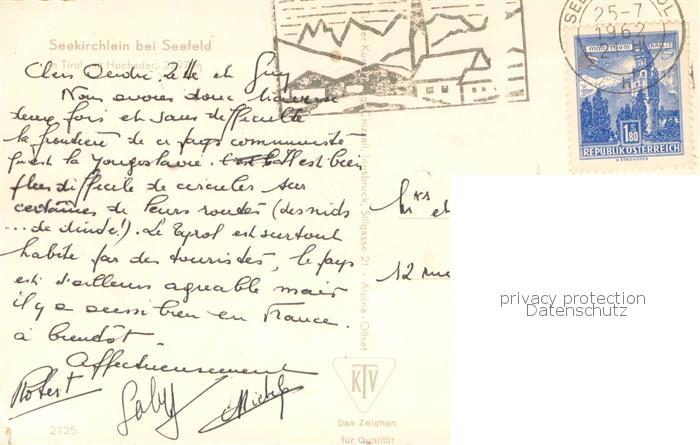 Seekirchlein bei Seefeld
in Tirol mit Hocheder, 2797 m
Chers Dédé, et Guy
Nous avons donc traversé
deux fois et sans difficulté
la frontière de ce pays communiste
qu'est la Yougoslavie. Il est bien
plus difficile de circuler sur
certaines de leurs routes (des nids
... de dinde!). Le Tyrol est surtout
habité par des touristes, le pays
est d'ailleurs agréable mais
il y a aussi bien en France.
à bientôt
Affectueusement
Robert Gaby Michel
2725
Innsbruck, Sillgasse 21 - Alpina-Offset
KTV
Das Zeichen
für Qualität
SEE
25-7
1962
1.80
REPUBLIK ÖSTERREICH
Mrs et
12 rue
privacy protection
Datenschutz